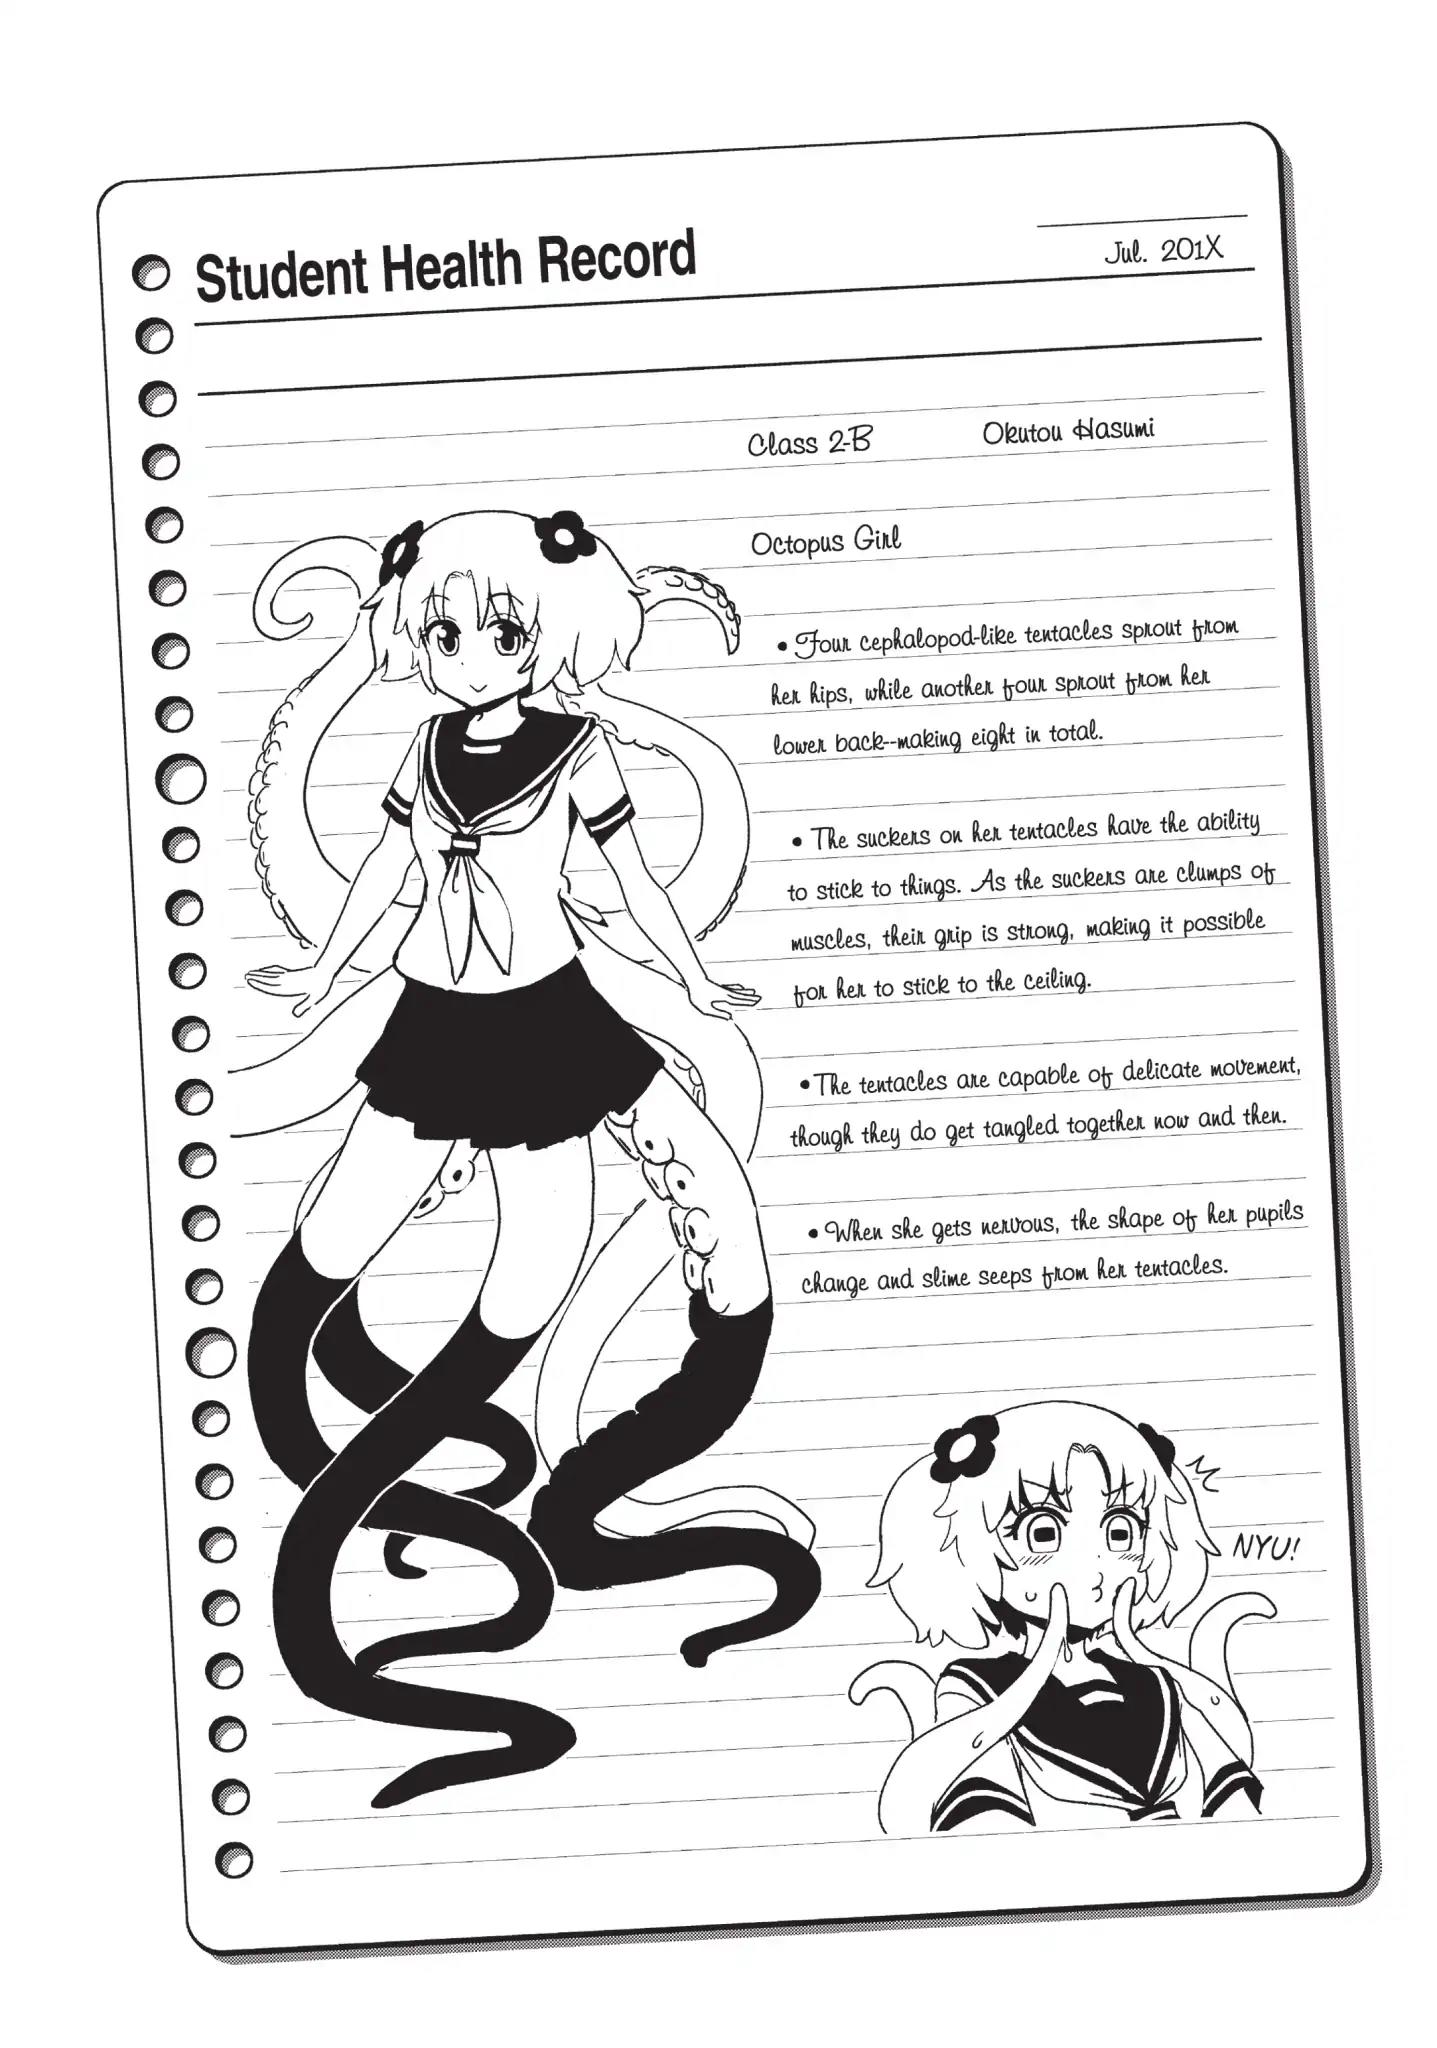 Student Health Record
Jul. 201X
Class 2-B Okutou Hasumi
Octopus Girl
• Four cephalopod-like tentacles sprout from
her hips, while another four sprout from her
lower back--making eight in total.
• The suckers on her tentacles have the ability
to stick to things. As the suckers are clumps of
muscles, their grip is strong, making it possible
for her to stick to the ceiling.
• The tentacles are capable of delicate movement,
though they do get tangled together now and then.
• When she gets nervous, the shape of her pupils
change and slime seeps from her tentacles.
NYU!